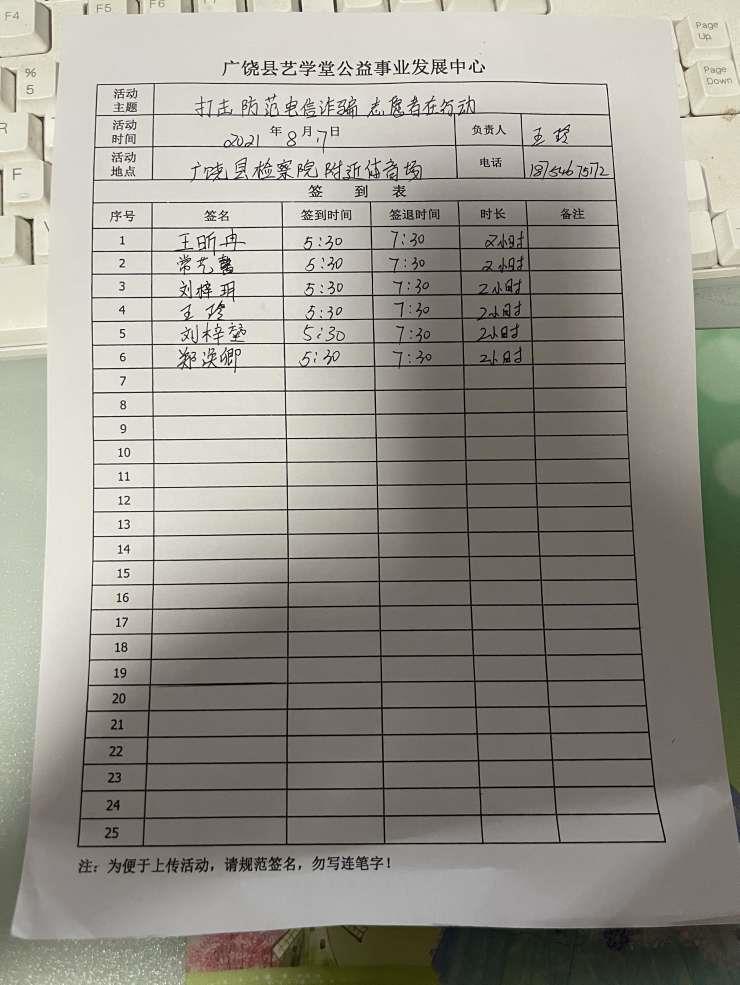 F4
F5
F6
Page Up
Page Down
%
5
R
F
广饶县艺学堂公益事业发展中心
活动主题 打击防范电信诈骗 志愿者在行动
活动时间 2021年8月7日 负责人 王玲
活动地点 广饶县检察院附近体育场 电话
签 到 表
序号 签名 签到时间 签退时间 时长 备注
1 王昕冉 5:30 7:30 2小时
2 常艺馨 5:30 7:30 2小时
3 刘梓玥 5:30 7:30 2小时
4 王玲 5:30 7:30 2小时
5 刘梓堃 5:30 7:30 2小时
6 郑淏卿 5:30 7:30 2小时
7
8
9
10
11
12
13
14
15
16
17
18
19
20
21
22
23
24
25
注：为便于上传活动，请规范签名，勿写连笔字！